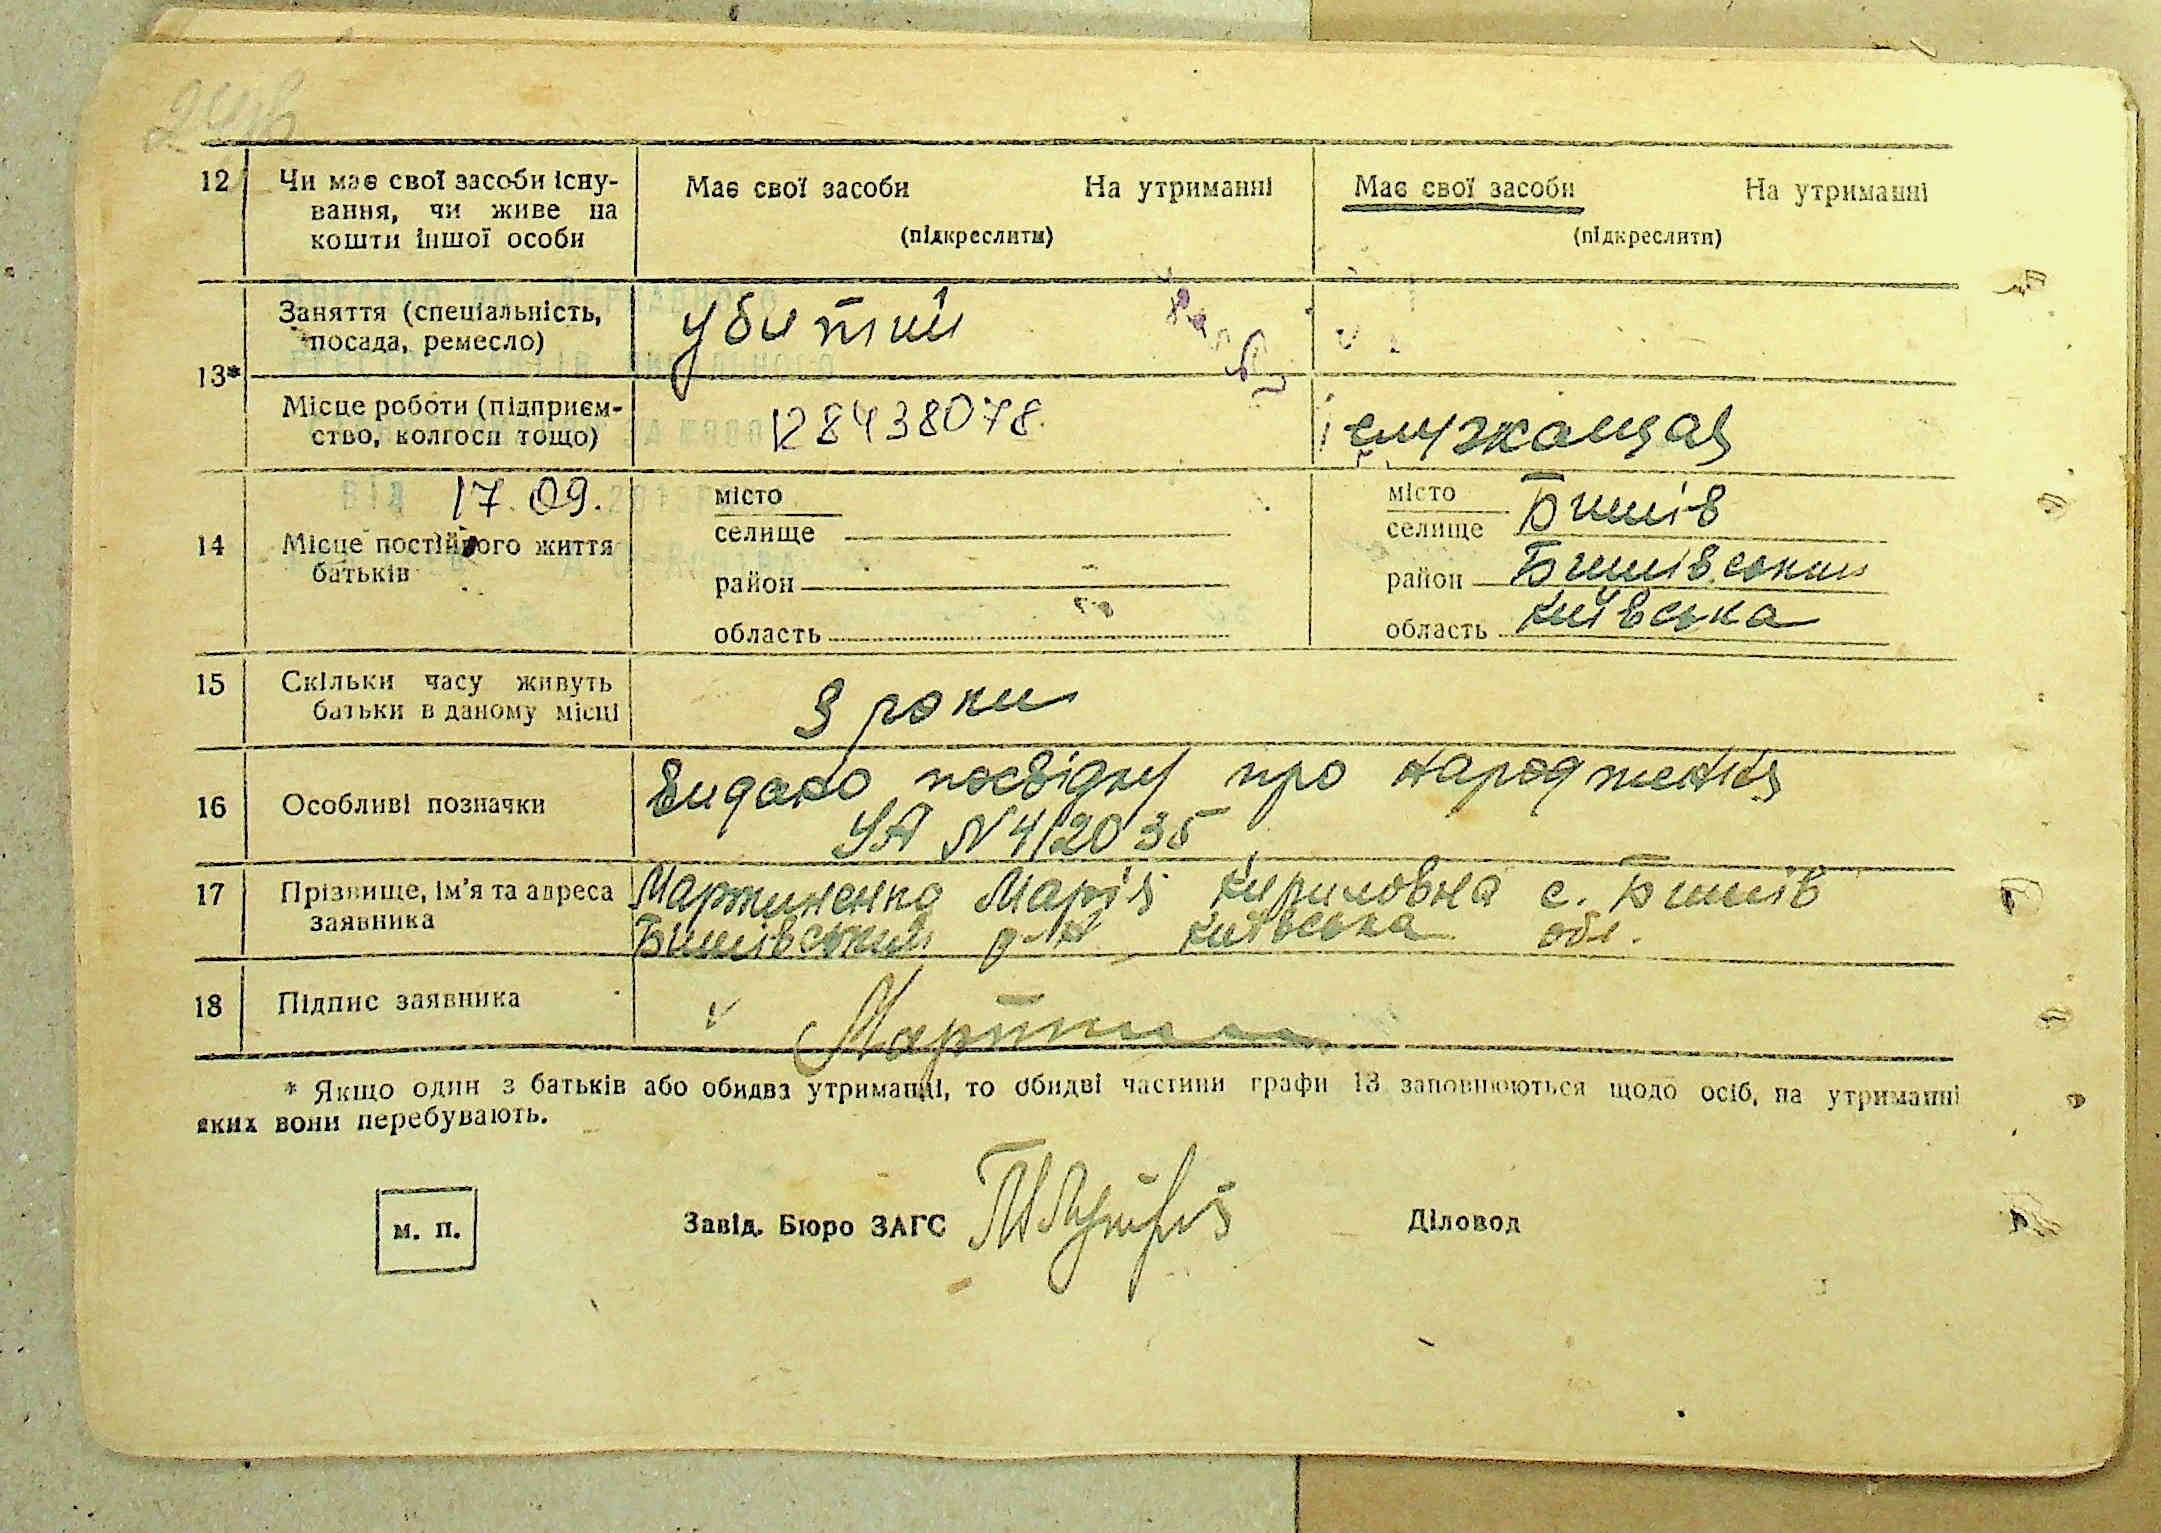 12 Чи має свої засоби існу- Має свої засоби На утриманні Має свої засоби На утриманні
вання, чи живе на
кошти іншої особи (підкреслити) (підкреслити)
Заняття (спеціальність, убитий
посада, ремесло)
13*
Місце роботи (підприєм- 128438078. служащая
ство, колгосп тощо)
17.09. місто місто Бишів
селище селище
14 Місце постійного життя
батьків район район Бишівський
область область Київська
15 Скільки часу живуть 3 роки
батьки в даному місці
Видано посвідку про народження
16 Особливі позначки УА N 412035
17 Прізвище, ім'я та адреса Мартиненко Марія Кириловна с. Бишів
заявника Бишівський р-н Київська обл.
18 Підпис заявника
* Якщо один з батьків або обидва утриманці, то обидві частини графи 13 заповнюються щодо осіб, на утриманні
яких вони перебувають.
м. п. Завід. Бюро ЗАГС Діловод